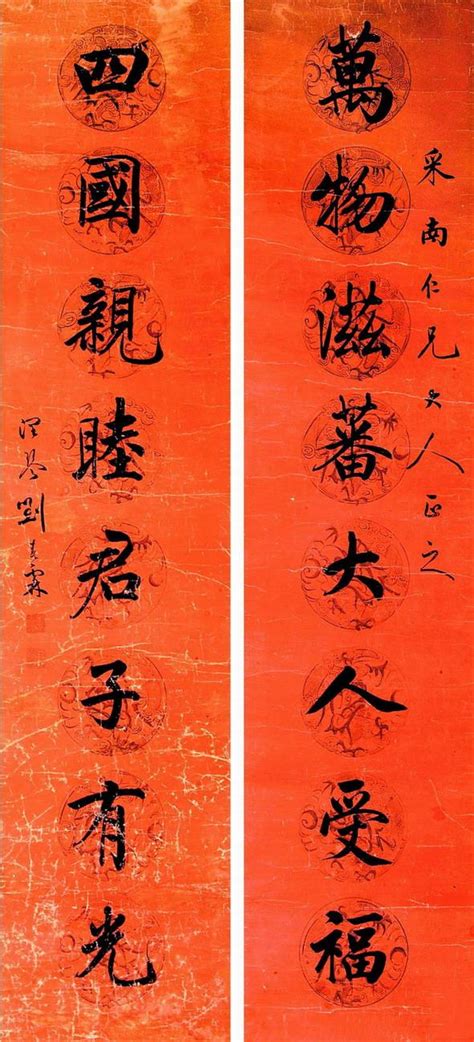 采南仁兄大人正之
萬物滋蕃大人受福
四國親睦君子有光
劉春霖